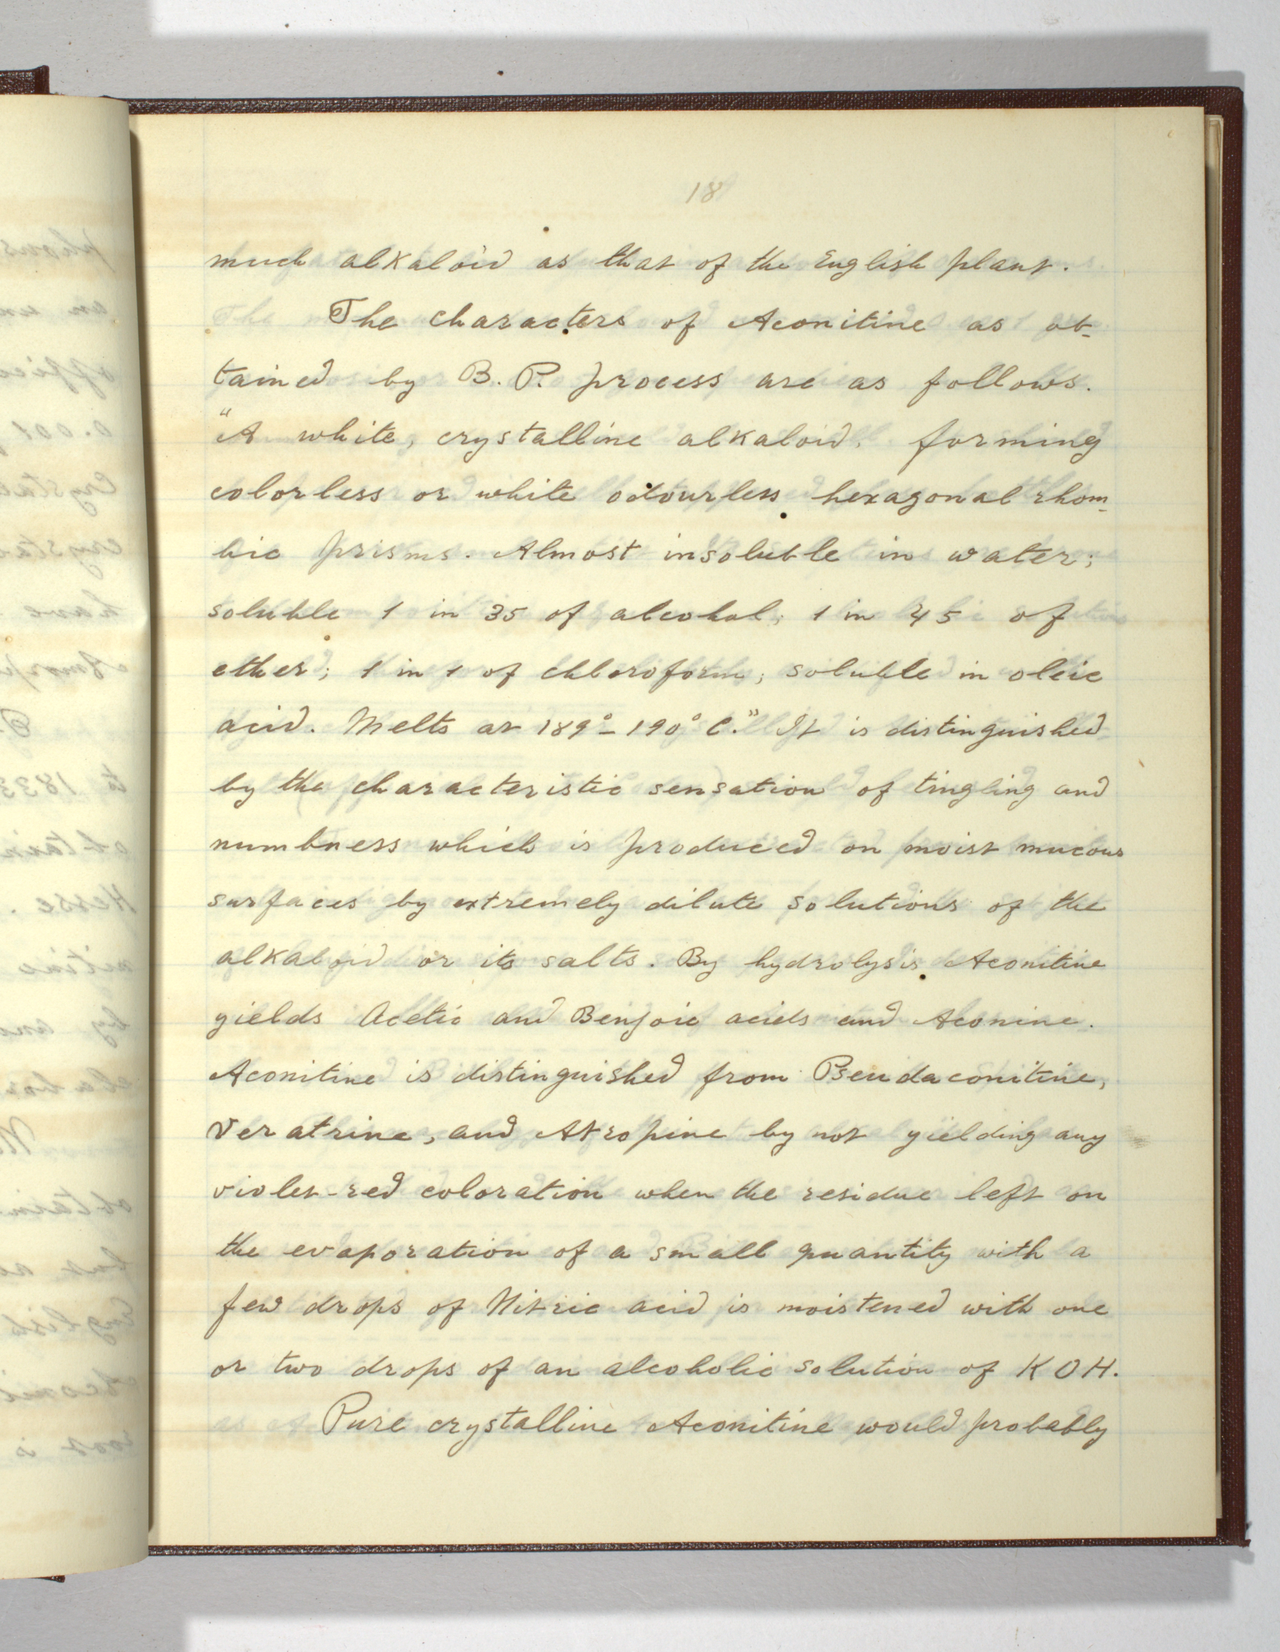 18
much alkaloid as that of the English plant.
The characters of Aconitine as ob-
tained by B. P. process are as follows.
"A white, crystalline alkaloid, forming
colorless or white odourless hexagonal rhom-
bic prisms. Almost insoluble in water;
soluble 1 in 35 of alcohol; 1 in 45 of
ether; 1 in 1 of chloroform; soluble in oleic
acid. Melts at 189°-190° C." It is distinguished
by the characteristic sensation of tingling and
numbness which is produced on moist mucous
surfaces by extremely dilute solutions of the
alkaloid or its salts. By hydrolysis Aconitine
yields Acetic and Benzoic acids and Aconine.
Aconitine is distinguished from Pseudaconitine,
Veratrine, and Atropine by not yielding any
violet-red coloration when the residue left on
the evaporation of a small quantity with a
few drops of Nitric acid is moistened with one
or two drops of an alcoholic solution of KOH.
Pure crystalline Aconitine would probably